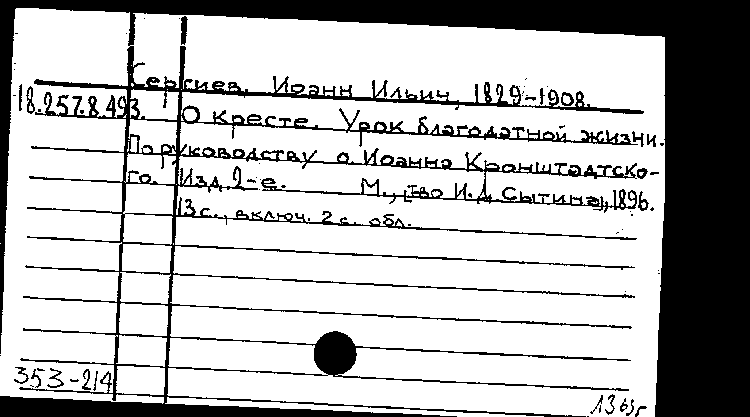 Сергиев, Иоанн Ильич, 1829-1908.
18.257.8.493. О кресте. Урок благодатной жизни.
По руководству о. Иоанна Кронштадтско-
го. Изд. 2-е. М., [тво И.Д. Сытина], 1896.
13 с., включ. 2 с. обл.
353-214